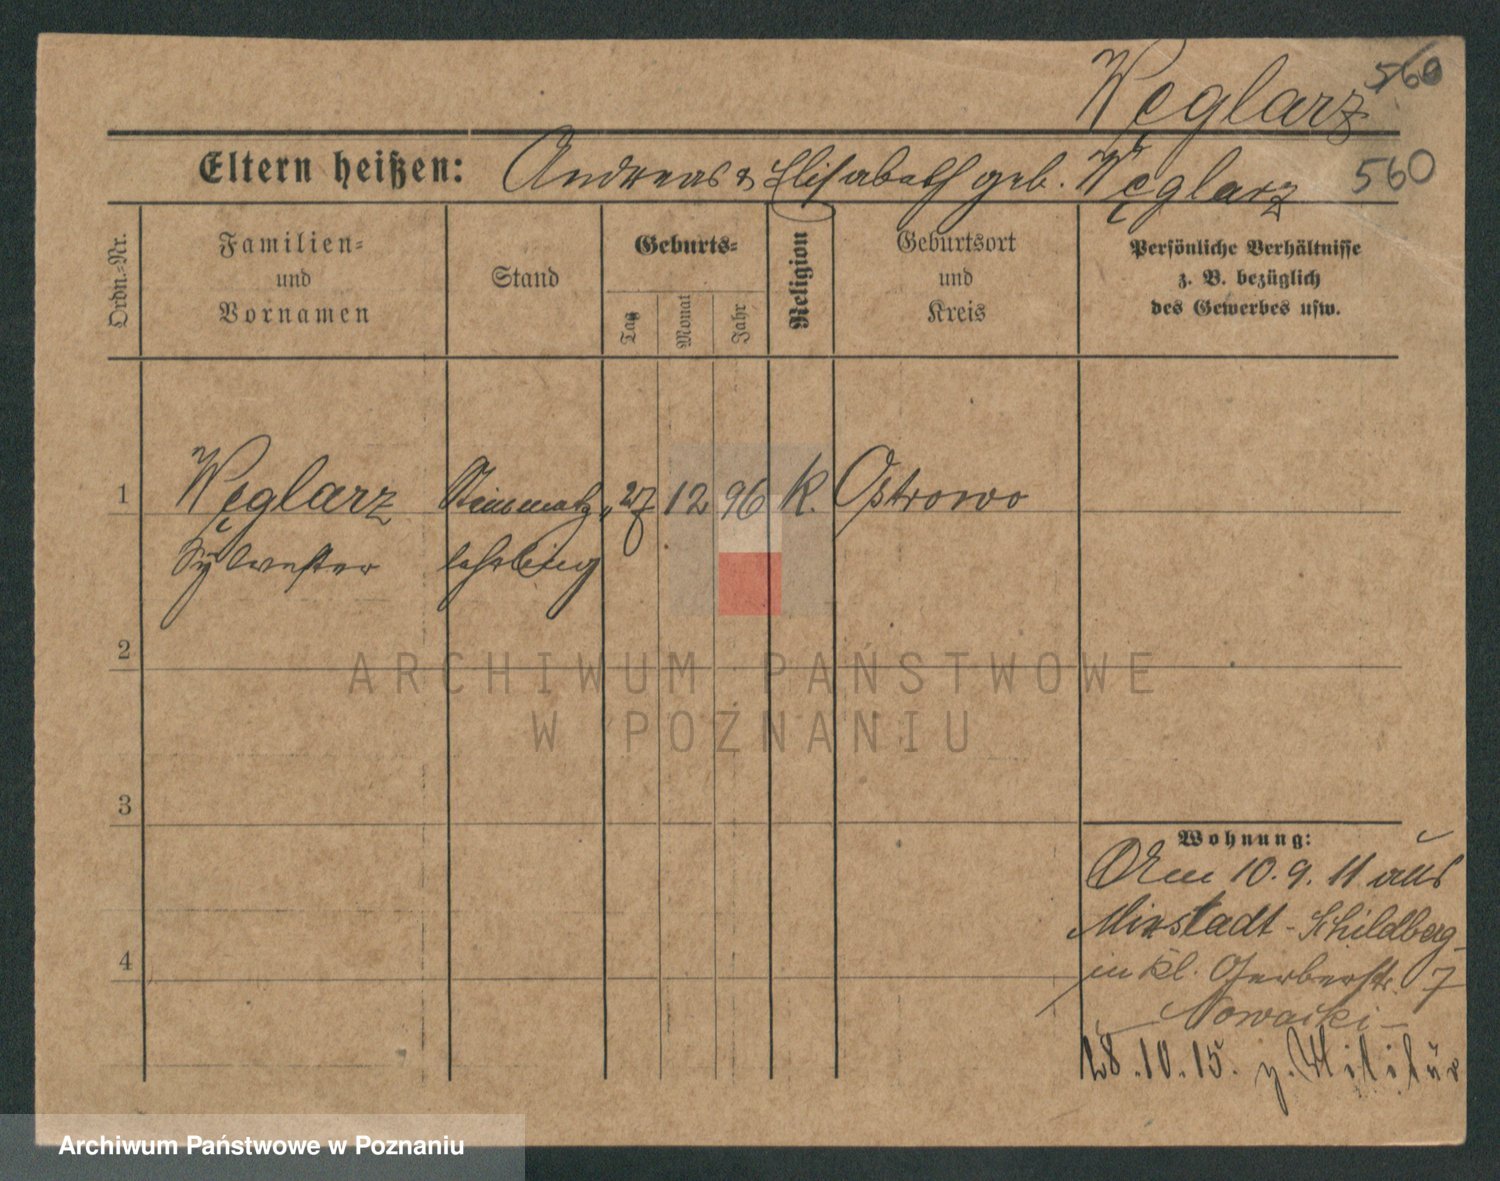 560
Węglarz
Eltern heißen: Andreas & Elisabeth geb. Węglarz 560
Ordn.-Nr.
Familien- und Vornamen
Stand
Geburts-
Tag
Monat
Jahr
Religion
Geburtsort und Kreis
Persönliche Verhältnisse
z. B. bezüglich
des Gewerbes usw.
1 Węglarz Steinmetz 27 12 96 K. Ostrowo
Sylvester lehrling
2
ARCHIWUM PAŃSTWOWE
W POZNANIU
3
Wohnung:
Am 10. 9. 11 aus
Mixstadt - Schildberg
4
in Kl. Gerberstr. 7
28. 10. 15. z. Militär
Archiwum Państwowe w Poznaniu